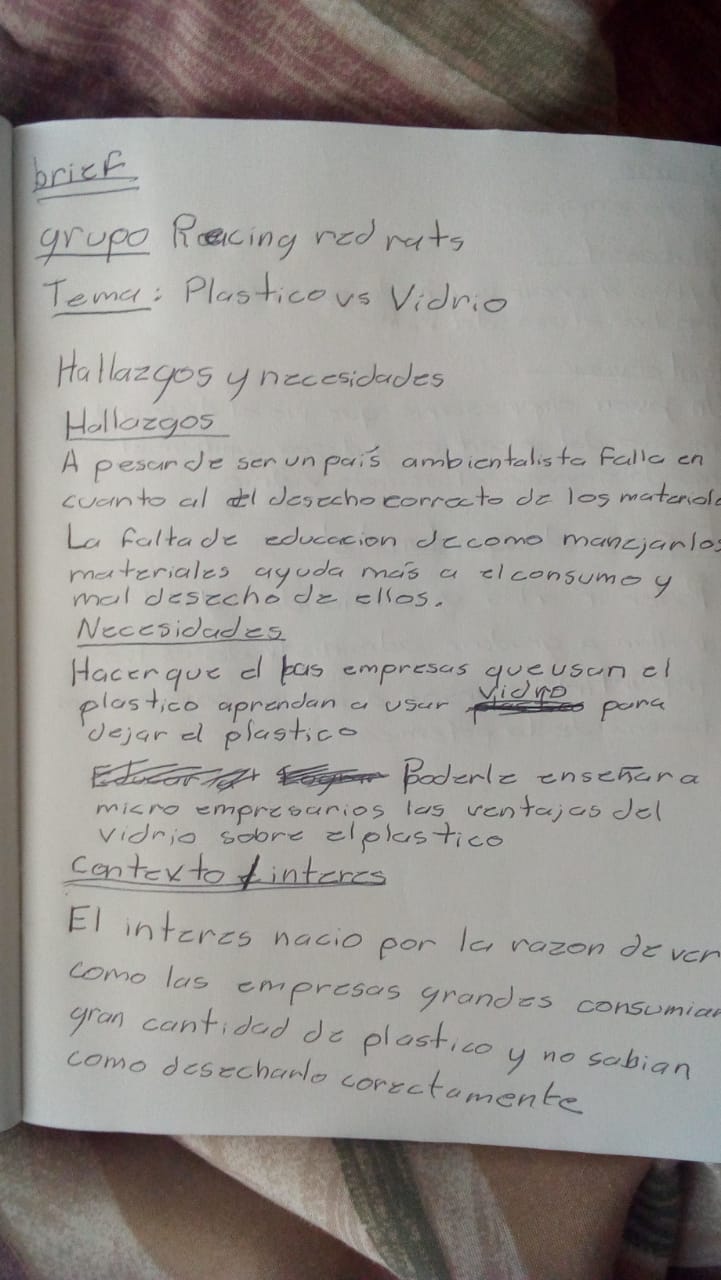 brief
grupo Racing red rats
Tema: Plastico vs Vidrio
Hallazgos y necesidades
Hallazgos
A pesar de ser un país ambientalista falla en
cuanto al desecho correcto de los materiale
La falta de educacion de como manejar los
materiales ayuda más a el consumo y
mal desecho de ellos.
Necesidades
Hacer que empresas que usan el
vidrio
plastico aprendan a usar para
dejar el plastico
Poderle enseñar a
micro empresarios las ventajas del
vidrio sobre el plastico
Contexto / interes
El interes nacio por la razon de ver
como las empresas grandes consumian
gran cantidad de plastico y no sabian
como desecharlo corectamente